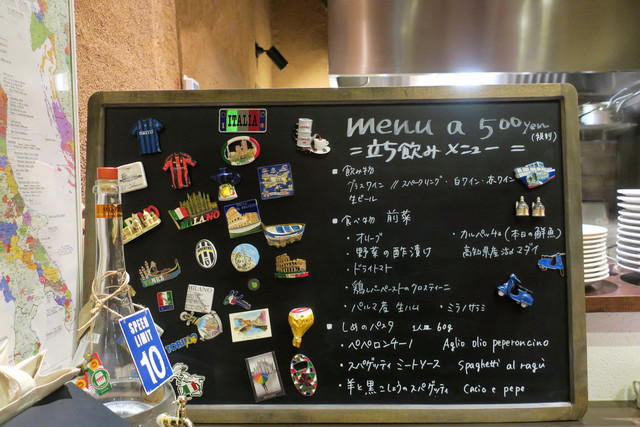 menu a 500 yen
(税別)
= 立ち飲みメニュー =
飲み物
グラスワイン // スパークリング・白ワイン・赤ワイン
生ビール
食べもの 前菜
・オリーブ
・野菜の酢漬け
・ドライトマト
・鶏レバーペーストのクロスティーニ
・パルマ産 生ハム ・ミラノサラミ
・カルパッチョ(本日の鮮魚)
高知県産 マダイ
しめのパスタ 1人前 60g
・ペペロンチーノ Aglio olio peperoncino
・スパゲッティ ミートソース Spaghetti al ragù
・羊と黒こしょうのスパゲッティ Cacio e pepe
ITALIA
MILANO
MILANO
SPEED
LIMIT
10